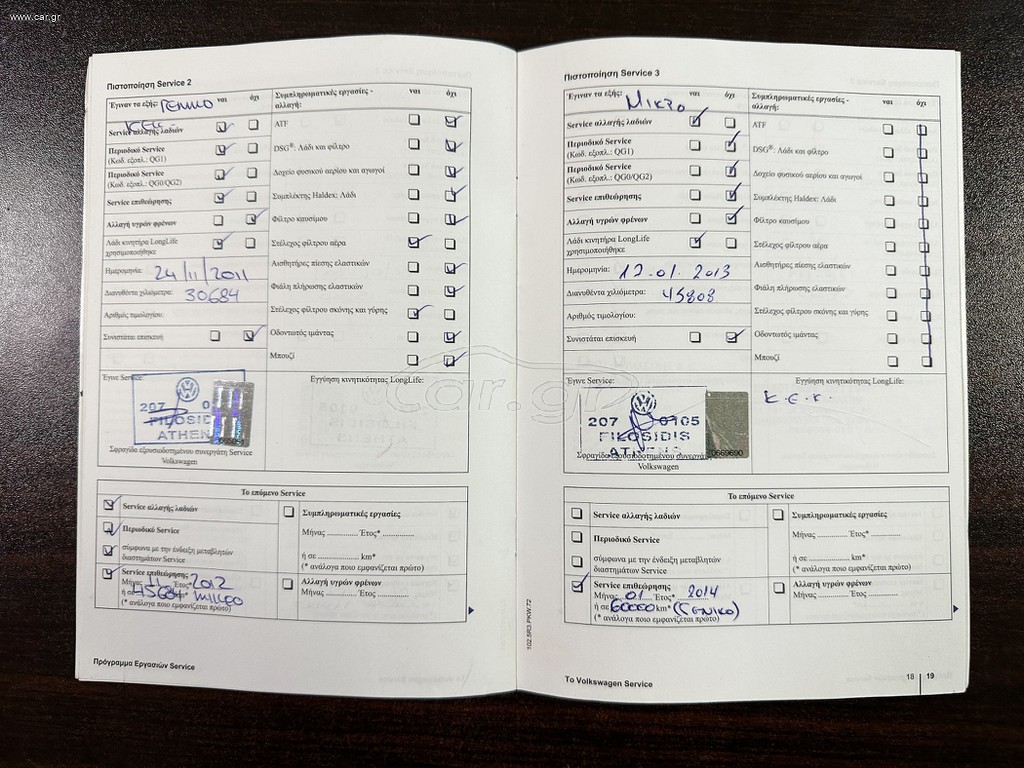 www.car.gr
Πιστοποίηση Service 2
Έγιναν τα εξής: ΓΕΝΙΚΟ ναι όχι
Service αλλαγής λαδιών
Περιοδικό Service
(Κωδ. εξοπλ.: QG1)
Περιοδικό Service
(Κωδ. εξοπλ.: QG0/QG2)
Service επιθεώρησης
Αλλαγή υγρών φρένων
Λάδι κινητήρα LongLife
χρησιμοποιήθηκε
Ημερομηνία: 24/11/2011
Διανυθέντα χιλιόμετρα: 30684
Αριθμός τιμολογίου:
Συνιστάται επισκευή
Συμπληρωματικές εργασίες - ναι όχι
αλλαγή:
ATF
DSG®: Λάδι και φίλτρο
Δοχείο φυσικού αερίου και αγωγοί
Συμπλέκτης Haldex: Λάδι
Φίλτρο καυσίμου
Στέλεχος φίλτρου αέρα
Αισθητήρες πίεσης ελαστικών
Φιάλη πλήρωσης ελαστικών
Στέλεχος φίλτρου σκόνης και γύρης
Οδοντωτός ιμάντας
Μπουζί
Έγινε Service:
207 0
FILOSIDIS
ATHEN
Σφραγίδα εξουσιοδοτημένου συνεργάτη Service
Volkswagen
Εγγύηση κινητικότητας LongLife:
Το επόμενο Service
Service αλλαγής λαδιών
Περιοδικό Service
σύμφωνα με την ένδειξη μεταβλητών
διαστημάτων Service
Service επιθεώρησης
Μήνας 11 Έτος* 2012
ή σε 45684 ΜΙΚΡΟ
(* ανάλογα ποιο εμφανίζεται πρώτο)
Συμπληρωματικές εργασίες
Μήνας .............. Έτος* ..............
ή σε ................... km*
(* ανάλογα ποιο εμφανίζεται πρώτο)
Αλλαγή υγρών φρένων
Μήνας .............. Έτος ..............
Πρόγραμμα Εργασιών Service
Πιστοποίηση Service 3
Έγιναν τα εξής: ΜΙΚΡΟ ναι όχι
Service αλλαγής λαδιών
Περιοδικό Service
(Κωδ. εξοπλ.: QG1)
Περιοδικό Service
(Κωδ. εξοπλ.: QG0/QG2)
Service επιθεώρησης
Αλλαγή υγρών φρένων
Λάδι κινητήρα LongLife
χρησιμοποιήθηκε
Ημερομηνία: 12.01.2013
Διανυθέντα χιλιόμετρα: 45808
Αριθμός τιμολογίου:
Συνιστάται επισκευή
Συμπληρωματικές εργασίες - ναι όχι
αλλαγή:
ATF
DSG®: Λάδι και φίλτρο
Δοχείο φυσικού αερίου και αγωγοί
Συμπλέκτης Haldex: Λάδι
Φίλτρο καυσίμου
Στέλεχος φίλτρου αέρα
Αισθητήρες πίεσης ελαστικών
Φιάλη πλήρωσης ελαστικών
Στέλεχος φίλτρου σκόνης και γύρης
Οδοντωτός ιμάντας
Μπουζί
Έγινε Service:
207 0105
FILOSIDIS
ATHEN
Σφραγίδα εξουσιοδοτημένου συνεργάτη
Volkswagen
Εγγύηση κινητικότητας LongLife:
Κ.Ε.Κ.
Το επόμενο Service
Service αλλαγής λαδιών
Περιοδικό Service
σύμφωνα με την ένδειξη μεταβλητών
διαστημάτων Service
Service επιθεώρησης
Μήνας 01 Έτος* 2014
ή σε 60000 km* (ΓΕΝΙΚΟ)
(* ανάλογα ποιο εμφανίζεται πρώτο)
Συμπληρωματικές εργασίες
Μήνας .............. Έτος* ..............
ή σε ................... km*
(* ανάλογα ποιο εμφανίζεται πρώτο)
Αλλαγή υγρών φρένων
Μήνας .............. Έτος ..............
102.5R3.PKW.72
Το Volkswagen Service
18 19
car.gr